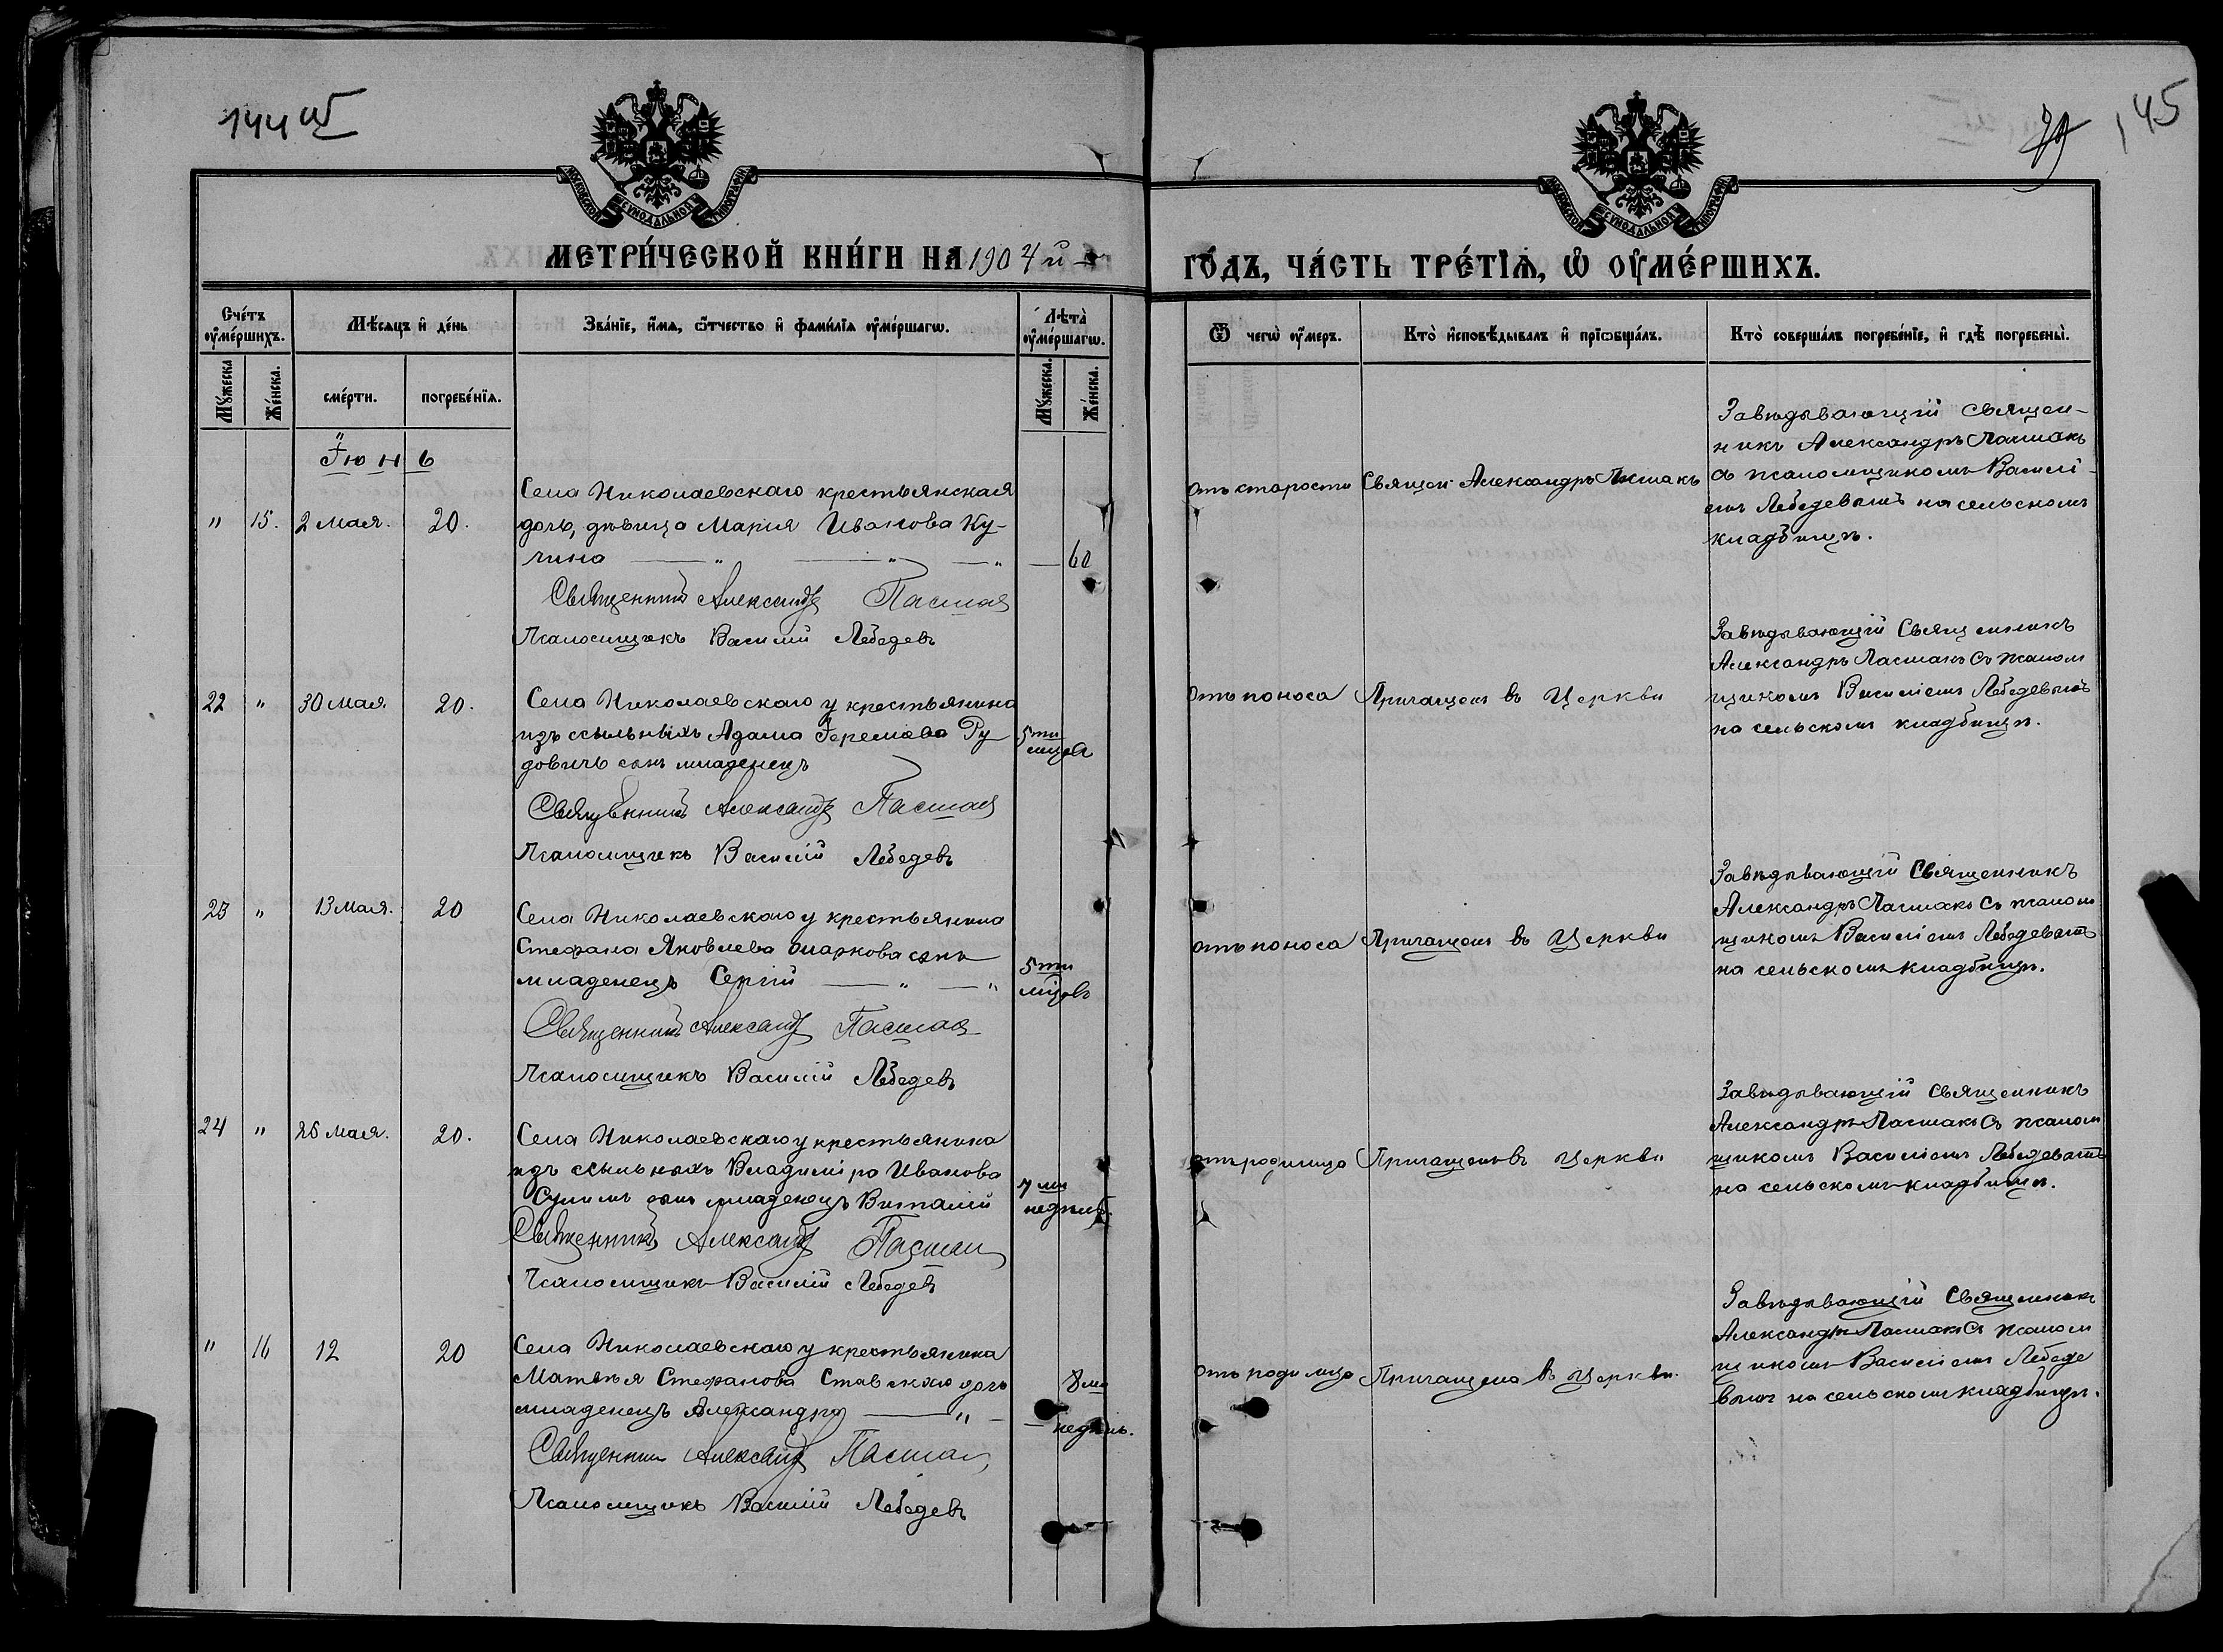 144 об
145
МЕТРИ́ЧЕСКОЙ КНИ́ГИ НА 1904 й
ГО́ДЪ, ЧА́СТЬ ТРЕ́ТІѦ, Ѡ҆ ОУ҆МЕ́РШИХЪ.
МОСКОВСКОЙ СѴНОДАЛЬНОЙ ТИПОГРАФІИ
МОСКОВСКОЙ СѴНОДАЛЬНОЙ ТИПОГРАФІИ
Сче́тъ оу҆ме́ршихъ.
Мꙋ́жеска
Же́нска.
Мѣ́сяцъ и҆ де́нь
сме́рти.
погребе́нїѧ.
Зва́нїе, и҆́мѧ, ѻ҆́тчество и҆ фами́лїѧ оу҆ме́ршагѡ.
Лѣ́та̀ оу҆ме́ршагѡ.
Мꙋ́жеска.
Же́нска.
Ѿ чегѡ̀ оу҆́меръ.
Кто̀ и҆сповѣ́дывалъ и҆ прїѡбща́лъ.
Кто̀ соверша́лъ погребе́нїе, и҆ гдѣ̀ погребены̀.
Іюнь
" 15. 2 мая. 20.
Села Николаевскаго крестьянская
дочь, девица Мария Иванова Ку-
лина — " — " — "
— 60
Священникъ Александръ Пасмакъ
Псаломщикъ Василій Лебедевъ
отъ старости
Священ. Александръ Пасмакъ
Завѣдывающій Священ-
никъ Александръ Пасмакъ
съ псаломщикомъ Василі-
емъ Лебедевымъ на сельскомъ
кладбищѣ.
22 " 30 мая. 20.
Села Николаевскаго у крестьянина
изъ ссыльныхъ Адама Іереміева Ру
довичъ сынъ младенецъ
5ти
мцовъ
Священникъ Александръ Пасмакъ
Псаломщикъ Василій Лебедевъ
отъ поноса
Причащенъ въ Церкви
Завѣдывающій Священникъ
Александръ Пасмакъ съ псалом
щикомъ Василіемъ Лебедевымъ
на сельскомъ кладбищѣ.
23 " 13 мая. 20
Села Николаевскаго у крестьянина
Стефана Яковлева Маркова сынъ
младенецъ Сергій — " — "
5ти
мцовъ
Священникъ Александръ Пасмакъ
Псаломщикъ Василій Лебедевъ
отъ поноса
Причащенъ въ Церкви
Завѣдывающій Священникъ
Александръ Пасмакъ съ псалом
щикомъ Василіемъ Лебедевымъ
на сельскомъ кладбищѣ.
24 " 26 мая. 20.
Села Николаевскаго у крестьянина
изъ ссыльныхъ Владиміра Иванова
сынъ младенецъ Виталій
7ми
недѣль.
Священникъ Александръ Пасмакъ
Псаломщикъ Василій Лебедевъ
отъ родимца
Причащенъ въ Церкви
Завѣдывающій Священникъ
Александръ Пасмакъ съ псалом
щикомъ Василіемъ Лебедевымъ
на сельскомъ кладбищѣ.
" 16 12 20
Села Николаевскаго у крестьянина
Матвѣя Стефанова Ставскаго дочь
младенецъ Александра — " —
8ми
— недѣль.
Священникъ Александръ Пасмакъ
Псаломщикъ Василій Лебедевъ
отъ родимца
Причащена въ Церкви.
Завѣдывающій Священникъ
Александръ Пасмакъ съ псалом
щикомъ Василіемъ Лебеде
вымъ на сельскомъ кладбищѣ.